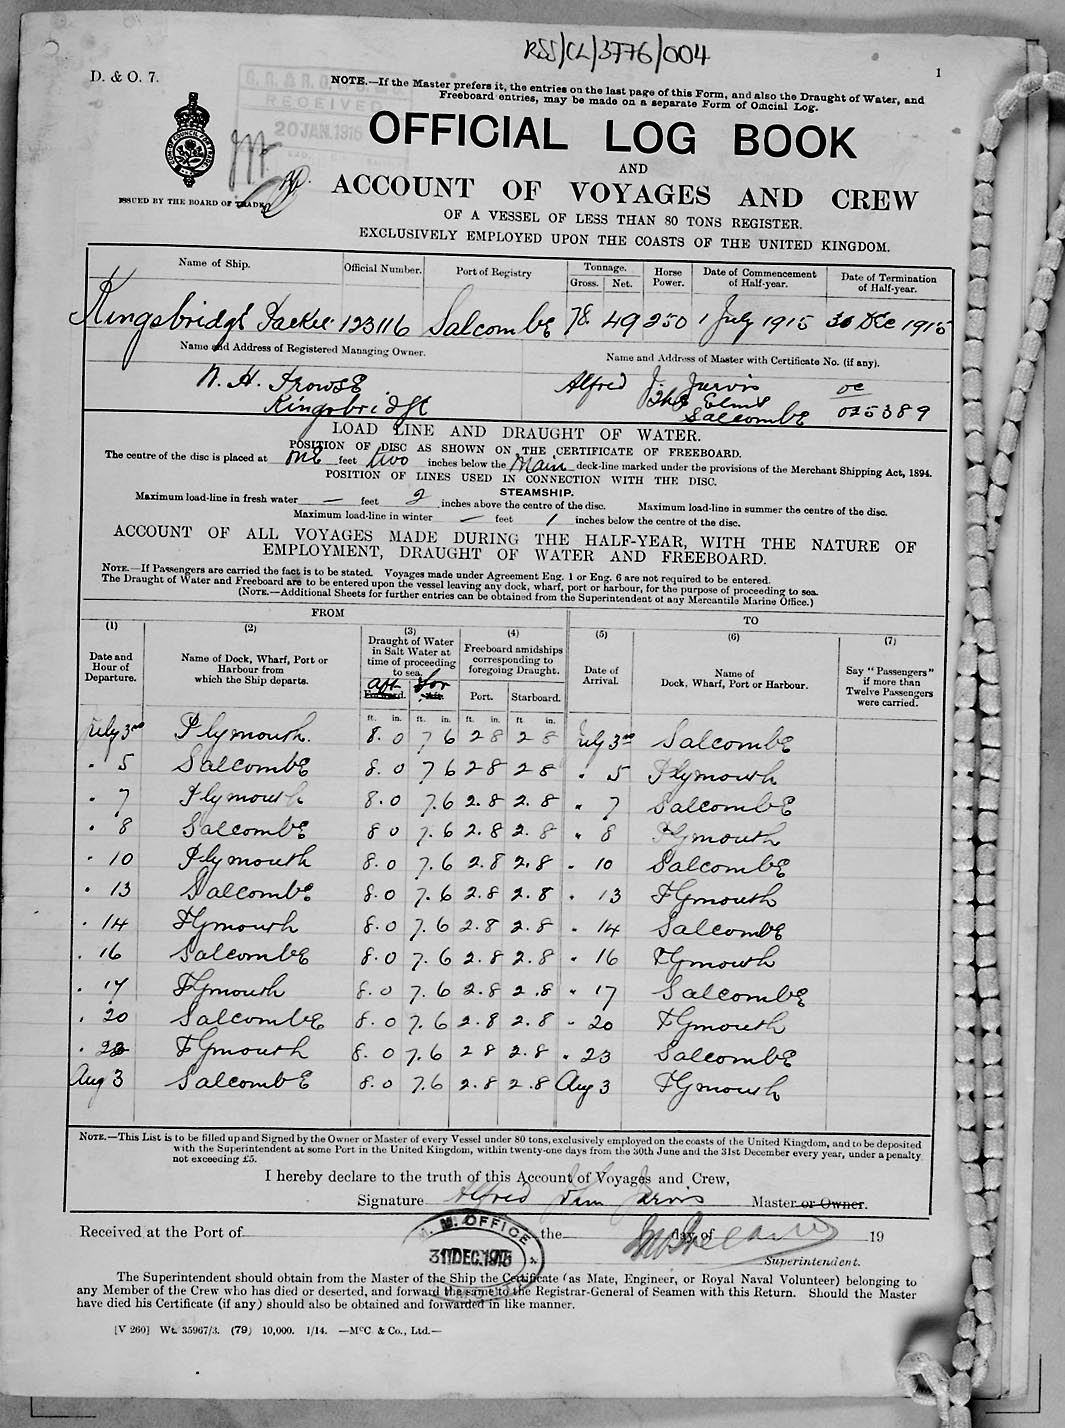 RSS/CL/3776/004
D. & O. 7.
1
NOTE.—If the Master prefers it, the entries on the last page of this Form, and also the Draught of Water, and
Freeboard entries, may be made on a separate Form of Official Log.
RECEIVED
20 JAN. 1916
OFFICIAL LOG BOOK
AND
ACCOUNT OF VOYAGES AND CREW
ISSUED BY THE BOARD OF TRADE
OF A VESSEL OF LESS THAN 80 TONS REGISTER.
EXCLUSIVELY EMPLOYED UPON THE COASTS OF THE UNITED KINGDOM.
Name of Ship. Official Number. Port of Registry Tonnage. Gross. Net. Horse Power. Date of Commencement of Half-year. Date of Termination of Half-year.
Kingsbridge Packet 123116 Salcombe 78 49 250 1 July 1915 31 Dec 1915
Name and Address of Registered Managing Owner. Name and Address of Master with Certificate No. (if any).
Alfred J. Jarvis
Kingsbridge The Elms 025389
Salcombe
LOAD LINE AND DRAUGHT OF WATER.
POSITION OF DISC AS SHOWN ON THE CERTIFICATE OF FREEBOARD.
The centre of the disc is placed at one feet two inches below the Main deck-line marked under the provisions of the Merchant Shipping Act, 1894.
POSITION OF LINES USED IN CONNECTION WITH THE DISC.
STEAMSHIP.
Maximum load-line in fresh water — feet 2 inches above the centre of the disc. Maximum load-line in summer the centre of the disc.
Maximum load-line in winter — feet 1 inches below the centre of the disc.
ACCOUNT OF ALL VOYAGES MADE DURING THE HALF-YEAR, WITH THE NATURE OF
EMPLOYMENT, DRAUGHT OF WATER AND FREEBOARD.
NOTE.—If Passengers are carried the fact is to be stated. Voyages made under Agreement Eng. 1 or Eng. 6 are not required to be entered.
The Draught of Water and Freeboard are to be entered upon the vessel leaving any dock, wharf, port or harbour, for the purpose of proceeding to sea.
(NOTE.—Additional Sheets for further entries can be obtained from the Superintendent of any Mercantile Marine Office.)
FROM TO
(1) (2) (3) (4) (5) (6) (7)
Date and Hour of Departure. Name of Dock, Wharf, Port or Harbour from which the Ship departs. Draught of Water in Salt Water at time of proceeding to sea. Freeboard amidships corresponding to foregoing Draught. Date of Arrival. Name of Dock, Wharf, Port or Harbour. Say "Passengers" if more than Twelve Passengers were carried.
Aft For
Forward. Aft. Port. Starboard.
ft. in. ft. in. ft. in. ft. in.
July 3rd Plymouth. 8.0 7 6 2 8 2 8 July 3rd Salcombe
" 5 Salcombe 8.0 7 6 2 8 2 8 " 5 Plymouth
" 7 Plymouth 8.0 7.6 2.8 2.8 " 7 Salcombe
" 8 Salcombe 8 0 7.6 2.8 2.8 " 8 Plymouth
" 10 Plymouth 8.0 7.6 2.8 2.8 " 10 Salcombe
" 13 Salcombe 8.0 7.6 2.8 2.8 " 13 Plymouth
" 14 Plymouth 8.0 7.6 2.8 2.8 " 14 Salcombe
" 16 Salcombe 8.0 7.6 2.8 2.8 " 16 Plymouth
" 17 Plymouth 8.0 7.6 2.8 2.8 " 17 Salcombe
" 20 Salcombe 8.0 7.6 2.8 2.8 " 20 Plymouth
" 23 Plymouth 8.0 7.6 2 8 2.8 " 23 Salcombe
Aug 3 Salcombe 8.0 7.6 2.8 2.8 Aug 3 Plymouth
NOTE.—This List is to be filled up and Signed by the Owner or Master of every Vessel under 80 tons, exclusively employed on the coasts of the United Kingdom, and to be deposited
with the Superintendent at some Port in the United Kingdom, within twenty-one days from the 30th June and the 31st December every year, under a penalty
not exceeding £5.
I hereby declare to the truth of this Account of Voyages and Crew,
Signature Alfred John Jarvis Master or Owner.
Received at the Port of the day of 19
M. M. OFFICE
31 DEC. 1915
Superintendent.
The Superintendent should obtain from the Master of the Ship the Certificate (as Mate, Engineer, or Royal Naval Volunteer) belonging to
any Member of the Crew who has died or deserted, and forward the same to the Registrar-General of Seamen with this Return. Should the Master
have died his Certificate (if any) should also be obtained and forwarded in like manner.
[V 260] Wt. 35967/3. (79) 10,000. 1/14. —McC & Co., Ltd.—